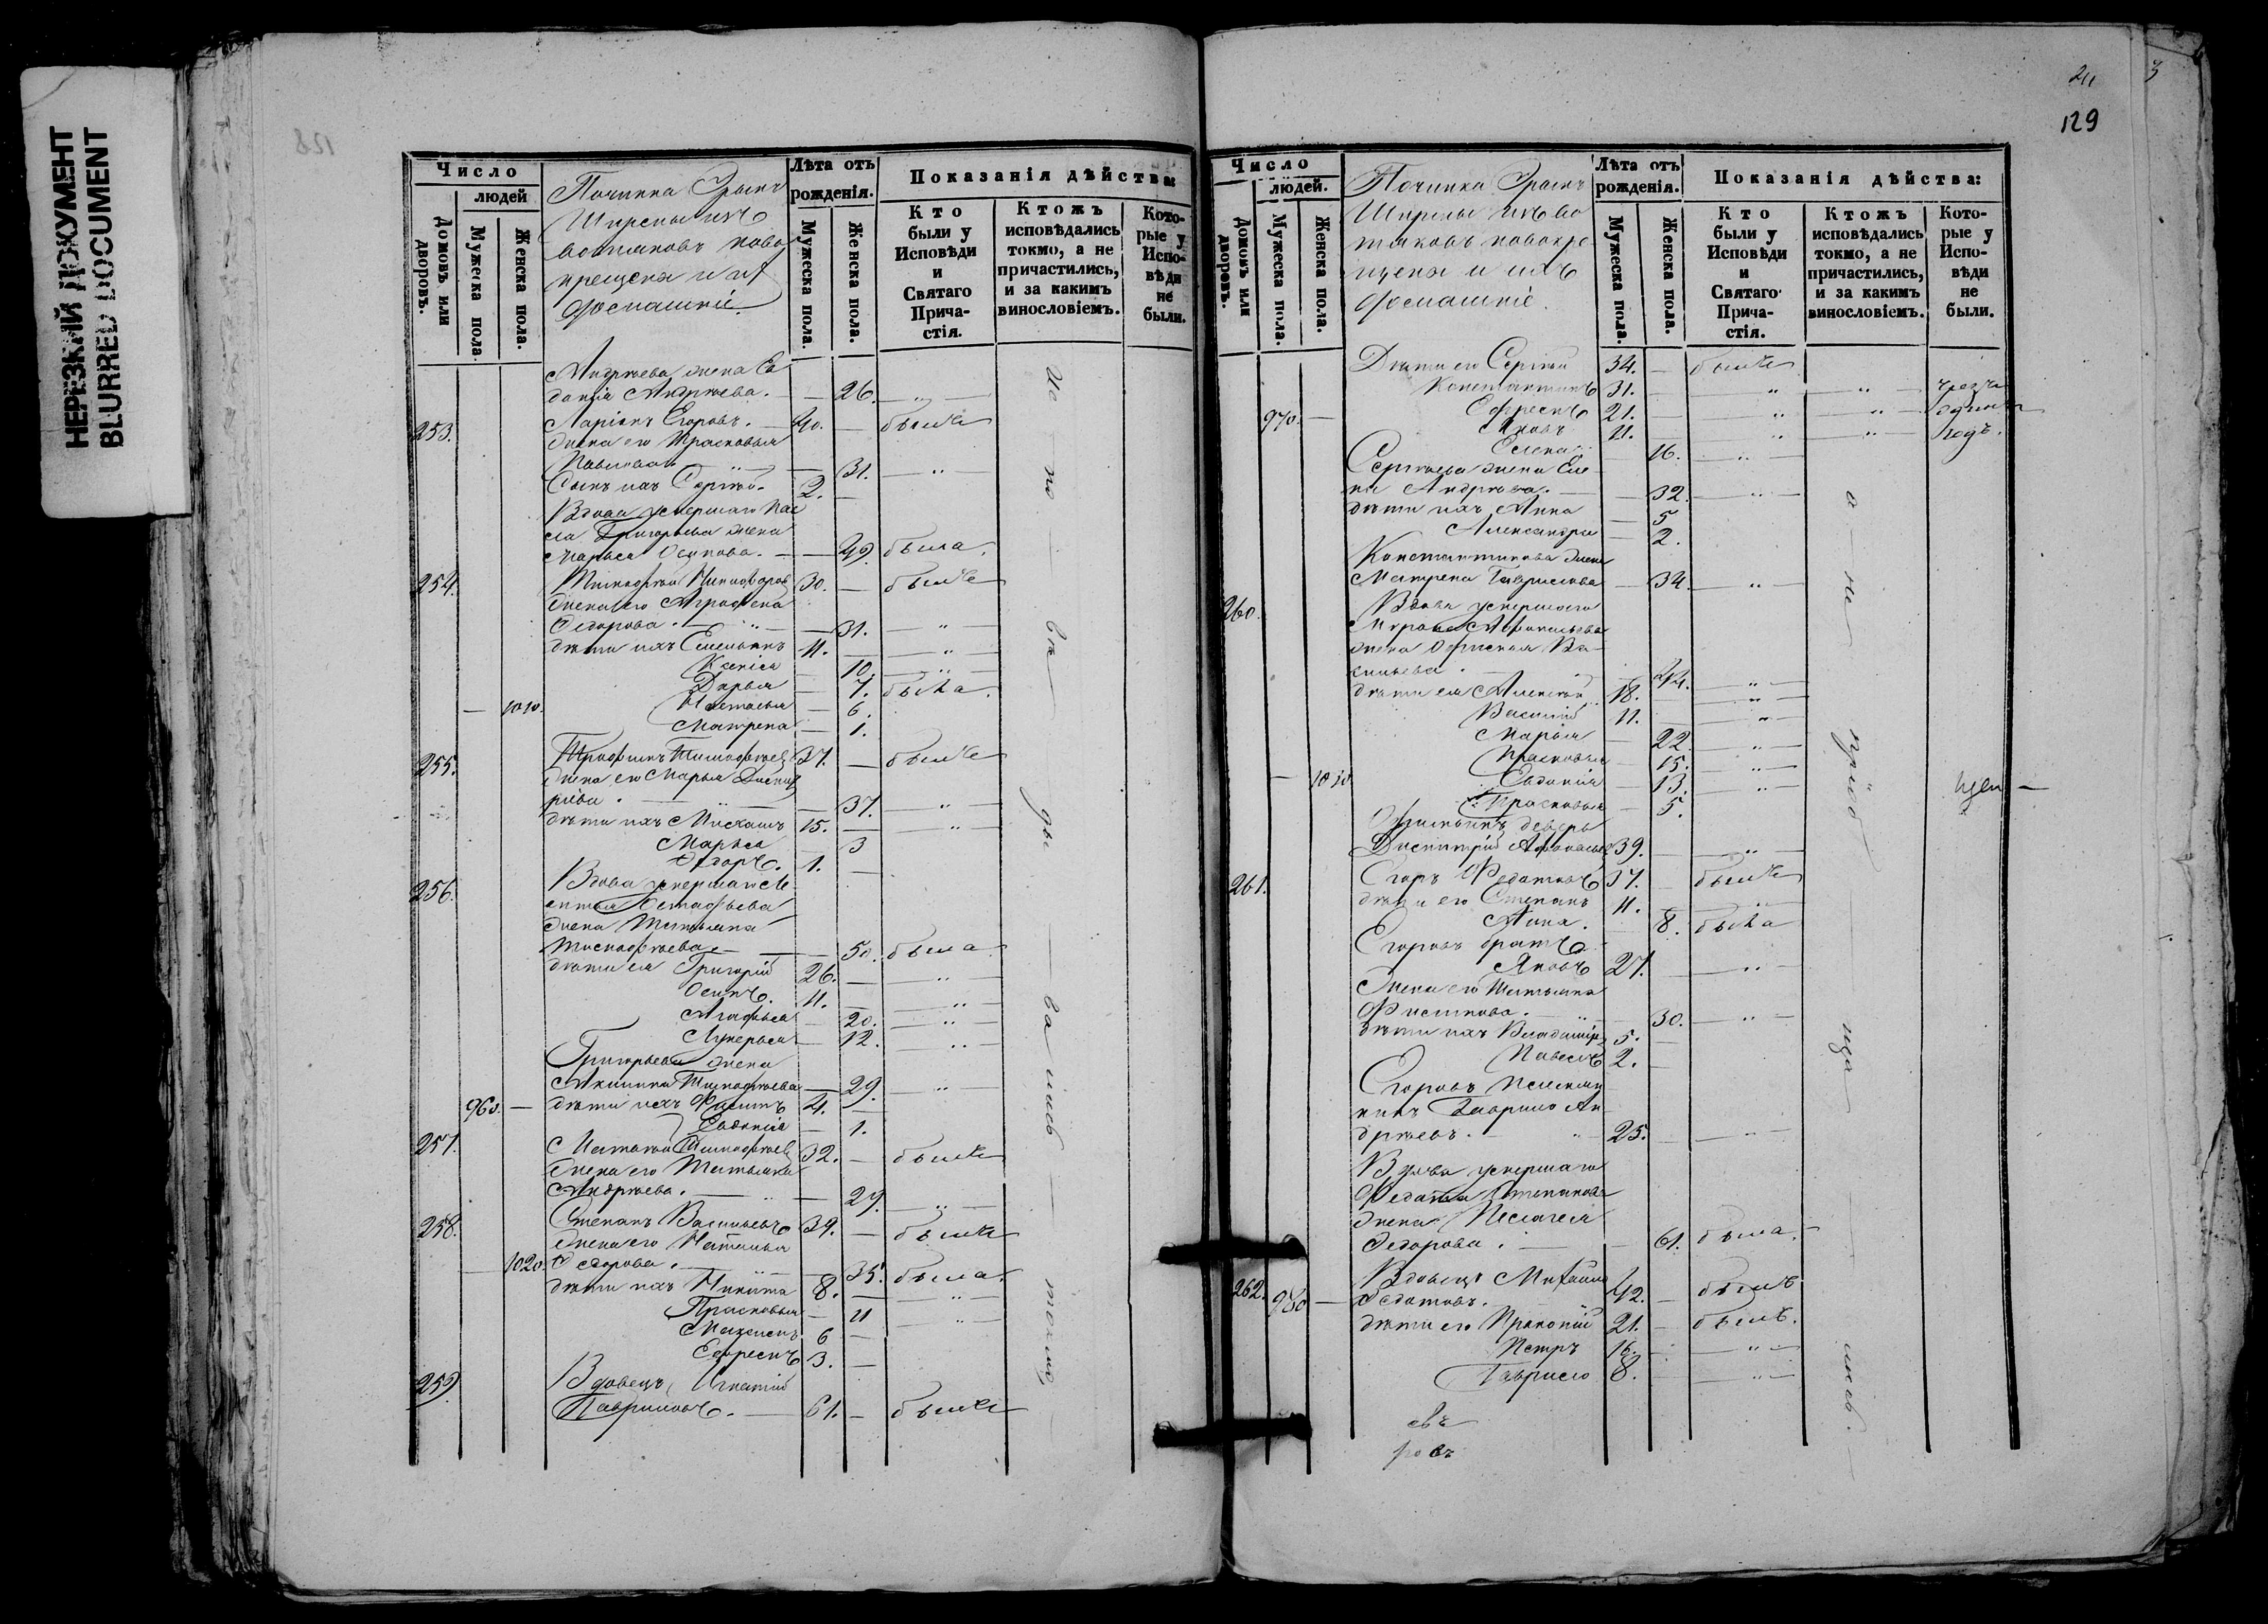 НЕРЕЗКИЙ ДОКУМЕНТ
BLURRED DOCUMENT
Число
людей
Домовъ или дворовъ.
Мужеска пола.
Женска пола.
Починка
Ширепы изъ
вотяковъ ново
крещены и их
домашніе.
Лѣта отъ рожденія.
Мужеска пола.
Женска пола.
Показанія дѣйства:
Кто были у Исповѣди и Святаго Прича-стія.
Ктожъ исповѣдались токмо, а не причастились, и за какимъ винословіемъ.
Кото-рые у Испо-вѣди не были.
Андреева жена Ев
докія Андреева. — — 26. — „ —
253. Ларіонъ Егоровъ. — 40. — были
жена его Прасковья
Павлова „ — — 31. — „ —
Сынъ ихъ Сергѣй. 2. —
Вдова умершаго
Григорьева жена
Марья Осипова. — — 49. была.
254. Тимофей Никифоров 30. — были
жена его Аграфена
Федорова. — „ — — 31. — „ —
дѣти ихъ Емельянъ 11. — — „ —
Ксенія — 10. — „ —
Дарья — 7. была.
— 1010. Настасья — 6.
Матрена — 1.
255. Трофимъ Тимофеев 37. — были
жена его Марья Дмит
ріева. — „ — — 37. — „ —
дѣти ихъ Михаилъ 15. — — „ —
Марья — 3
Федоръ. 1. —
256. Вдова умершаго
жена Татьяна
Тимофеева — — 50. была.
дѣти ея Григорій 26. — — „ —
Осипъ. 11. — — „ —
Агафья — 20. — „ —
Лукерья — 12. — „ —
Григорьева жена
Акилина Тимофеева — 29. — „ —
960. — дѣти ихъ Филипъ 4. —
Евдокія — 1.
257. Матвей Тимофеев 32. — были
жена его Татьяна
Андреева. — „ — — 29. — „ —
258. Степанъ Васильевъ 39. — были
жена его Наталья
— 1020. Федорова. — „ — — 35. была.
дѣти ихъ Никита 8. — — „ —
Прасковья — 11 — „ —
Максимъ 6 —
Ефремъ 3. —
259. Вдовецъ Игнатій
Гавриловъ. — 61. — были
129
Число
людей.
Домовъ или дворовъ.
Мужеска пола.
Женска пола.
Починка
Ширепы изъ во
тяковъ новокре
щены и ихъ
домашніе.
Лѣта отъ рожденія.
Мужеска пола.
Женска пола.
Показанія дѣйства:
Кто были у Исповѣди и Святаго Прича-стія.
Ктожъ исповѣдались токмо, а не причастились, и за какимъ винословіемъ.
Кото-рые у Испо-вѣди не были.
Дѣти его Сергѣй 34. — были
Константинъ 31. — — „ — „ —
970. — Ефремъ 21. — — „ — „ —
Яковъ 11. — — „ — „ —
Елена — 16. — „ —
Сергѣева жена Еле
на Андреева. — — 32. — „ —
дѣти ихъ Анна — 5
Александра — 2.
Константинова жена
Матрена Гаврилова — 34. — „ —
260. Вдова умершаго
жена Офимья Ва
сильева. — 44. — „ —
дѣти ея Алексѣй 18. — — „ —
Василій 11. — — „ —
Марья — 22. — „ —
Прасковья — 15. — „ —
— 1030 Евдокія — 13. — „ —
Прасковья — 5.
Офимьинъ деверь
Дмитрій Афанасьев 39. — — „ —
261. Егоръ Федотовъ 37. — были
дѣти его Степанъ 11. — — „ —
Анна. — 8. была
Егоровъ братъ
Яковъ 27. — — „ —
Жена его Татьяна
Филипова. — „ — 30. — „ —
дѣти ихъ Владимір 5. —
Павелъ 2. —
Егоровъ племян
никъ Гаврило Ан
дреевъ. — „ — 25. — — „ —
Вдова умершаго
Федота Степанова
жена Пелагея
Федорова. — — 61. была.
262. 980 — Вдовецъ Михаилъ
Федотовъ. 42. — былъ
дѣти его Прокопій 21. — былъ.
Петръ 16. — — „ —
Гаврило 8. — — „ —